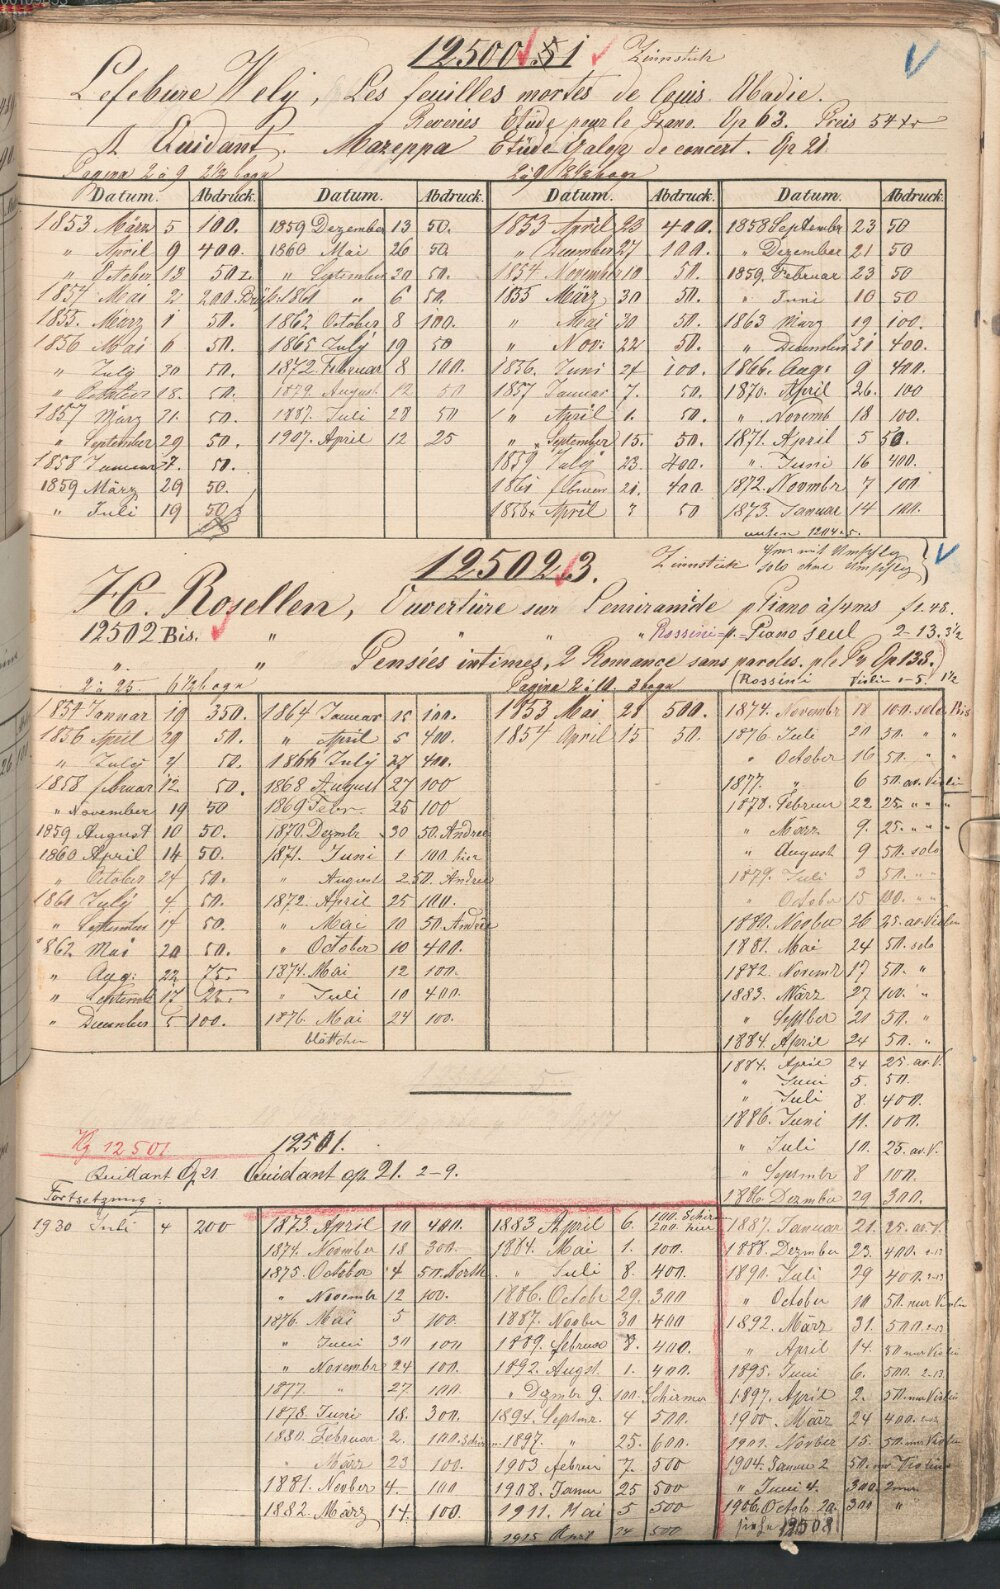 12500.1 Zinnstück
Lefebure Wely, Les feuilles mortes de Louis Abadie.
Reveries Etude pour le Piano. Op 63. Preis 54 xr
A. Quidant. Mazeppa Etüde Galop de concert. Op 21
Pagina 2 à 9 2½ bogn 2 à 9 2½ bogn
Datum. Abdruck. Datum. Abdruck. Datum. Abdruck. Datum. Abdruck.
1853 März 5 100. 1859 Dezember 13 50. 1853 April 23 400. 1858 Septembr 23 50
" April 9 400. 1860 Mai 26 50. " December 27 100. " Dezember 21 50
" October 18 50. " September 20 50. 1854 November 10 50. 1859. Februar 23 50
1854 Mai 2 200. 1861 " 6 50. 1855 März 30 50. " Juni 10 50
1855. März 1 50. 1862 October 8 100. " Mai 30 50. 1863 März 19 100.
1856 Mai 6 50. 1865 July 19 50 " Nov: 22 50. " Decembre 31 400.
" July 30 50. 1872. Februar 8 100. 1856. Juni 24 100. 1866. Aug: 9 400.
" October 18. 50. 1879. August 12 50 1857 Januar 7. 50. 1870. April 26. 100
1857 März 31. 50. 1887. Juli 28 50 " April 1. 50. " Novemb 18 100.
" September 29 50. 1907. April 12 25 " September 15. 50. 1871. April 5 50.
1858 Januar 7. 50. 1859 July 23. 400. " Juni 16 400.
1859 März 29 50. 1861 februar 21. 400. 1872. Novmbr 7 100
" Juli 19 50 April 3 50 1873. Januar 14 100.
12502.3. Zinnstück 4/ms mit Umschlg
solo ohne Umschlg
H. Rosellen, Ouvertüre sur Semiramide p Piano à/4ms f 1.48.
12502 Bis. " " " Rossini p. Piano seul 2-13. 3½
" " Pensées intimes, 2 Romance sans paroles. Op 138.
2 à 25 6½ bogn Pagina 2 à 11. 3 bogn (Rossini Violin 1-5. 1½
1854 Januar 19 350. 1864 Januar 15 100. 1853 Mai 28 500. 1874. Novembr 18 100. solo Bis
1856 April 29 50. " April 5 400. 1854 April 15 50. 1876. Juli 20 50. " "
" July 4 50. 1866 July 27 400. " October 16 50. " "
1858 februar 12. 50. 1868 August 27 100 1877. " 6 50. av. Violin
" November 19 50 1869 Febr 25 100 1878. Februar 22 25. " " "
1859 August 10 50. 1870. Dezmbr 30 50. Andreé " März 9. 25. " " "
1860 April 14 50. 1871. Juni 1 100. hier " August 9 50. solo
" October 24 50. " August 2 50. Andreé 1879. Juli 3 50. " "
1861 July 4 50. 1872. April 25 100. " October 15 100. " "
" September 14 50. " Mai 10 50. Andreé 1880. Novber 26 25. av. Violin
1862 Mai 20 50. " October 10 400. 1881. Mai 24 50. solo
" Aug: 22 75. 1874. Mai 12 100. 1882. Novemr 17 50. "
" Septemb 17 25. " Juli 10 400. 1883. März 27 100. "
" December 5 100. 1876. Mai 24 100. " Septber 20 50. "
blättchen 1884. April 24 50. "
1884. April 24 25. av. V.
" Juni 5. 50.
" Juli 8. 400.
1886. Juni 11. 100.
Hg 12501 12501. " Juli 10. 25. av. V.
Quidant Op 21 Quidant op. 21. 2-9. " Septmbr 8 100.
Fortsetzung: 1886. Dezmber 29 300.
1930 Juli 4 200 1873. April 10 400. 1883. April 6. 100. Schirm 200. hier 1887. Januar 21. 25. av. V.
1874. Novmber 18 300. 1884. Mai 1. 100. 1888. Dezmber 23. 400. 2-13
1875. October 4 50. North " Juli 8. 400. 1890. Juli 29 400. 2-13
" Novembr 12 100. 1886. Octobr 29. 300 " October 10 50. nur Violin
1876. Mai 5 100. 1887. Novber 30 400 1892. März 31. 500. 2-13
" Juni 30 100 1889. februar 8. 400. " April 14. 50 nur Violin
" Novembr 24 100. 1892. Augst 1. 400. 1895. Juni 6. 500. 2-13
1877. " 27 100. " Dezmbr 9. 100. Schirmer 1897. April 2. 50. nur Violin
1878. Juni 18. 300. 1894. Septmr. 4 500. 1900. März 24 400. 2-13
1880. Februar 2. 100. 1897. " 25. 600. 1901. Novber 15. 50. nur Violin
" März 23 100. 1903 februar 7. 500 1904. Januar 2 50. nur Violin
1881. Novber 4. 100 1908. Janur 25 500 " Juni 4. 300.
1882. März 14. 100. 1911. Mai 5 500 1906. Octobr 20. 300 "
1915 April 24 500 siehe 12508